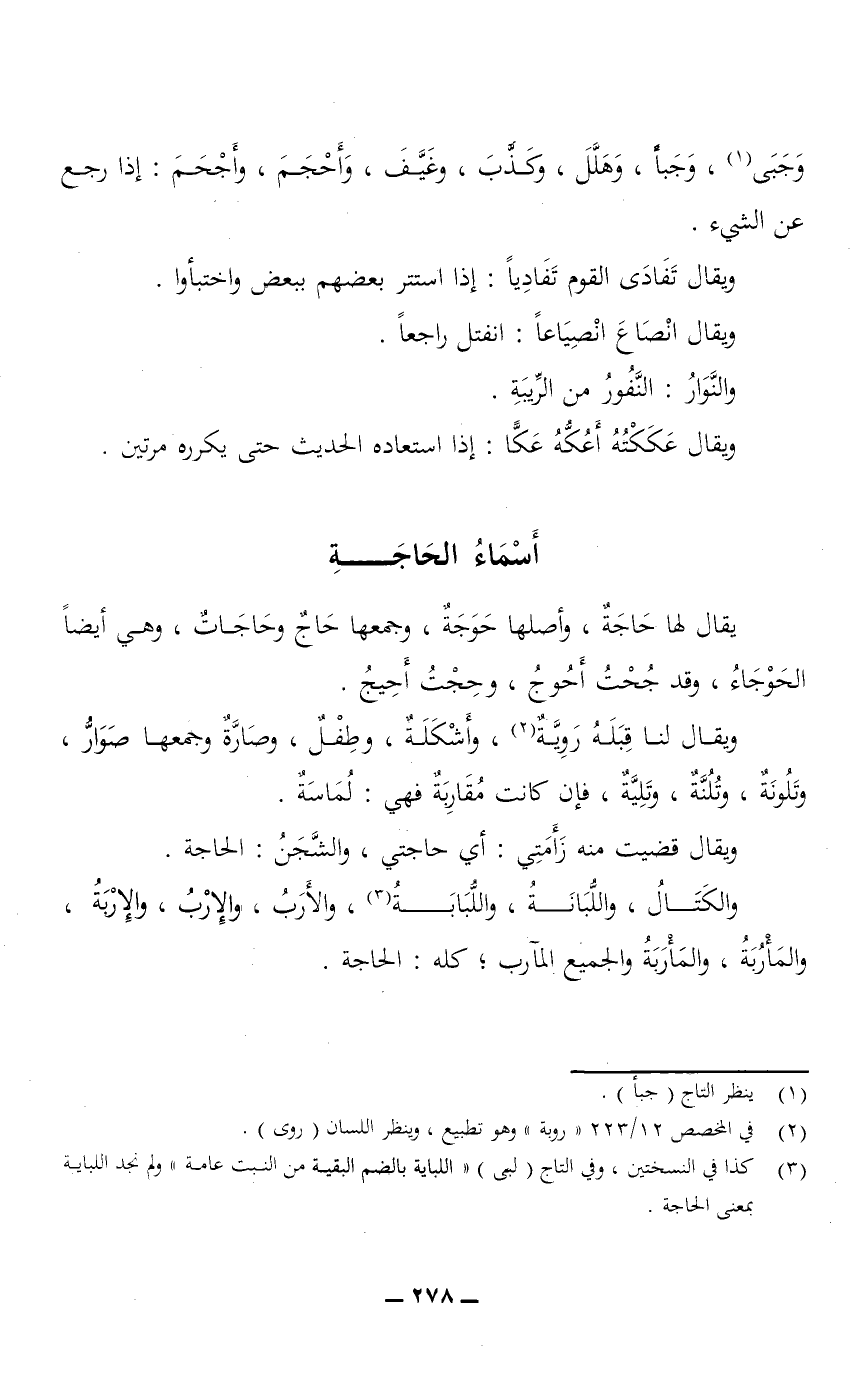 وَجَبَى(١) ، وَجَبأَ ، وَهَلَّلَ ، وكَذَّبَ ، وغَيَّفَ ، وَأَحْجَمَ ، وأَجْحَمَ : إذا رجع
عن الشيء .
ويقال تَفَادَى القوم تَفَادِياً : إذا استتر بعضهم ببعض واختبأوا .
ويقال انْصَاعَ انْصِيَاعاً : انفتل راجعاً .
والنَّوَارُ : النَّفُورُ من الرِّيبَةِ .
ويقال عَكَكْتُهُ أَعُكُّهُ عَكًّا : إذا استعاده الحديث حتى يكرره مرتين .
أَسْمَاءُ الحَاجَـــــةِ
يقال لها حَاجَةٌ ، وأصلها حَوَجَةٌ ، وجمعها حَاجٌ وحَاجَاتٌ ، وهي أيضاً
الحَوْجَاءُ ، وقد حُجْتُ أَحُوجُ ، وحِجْتُ أَحِيجُ .
ويقال لنا قِبَلَهُ رَوِيَّةٌ(٢) ، وأَشْكَلَةٌ ، وطِفْلٌ ، وصَارَّةٌ وجمعها صَوَارُّ ،
وتَلُونَةٌ ، وتُلُنَّةٌ ، وتَلِيَّةٌ ، فإن كانت مُقَارِبَةٌ فهي : لُمَاسَةٌ .
ويقال قضيت منه زَأْمَتِي : أي حاجتي ، والشَّجَنُ : الحاجة .
والكَتَـــالُ ، واللُّبَانَـــةُ ، واللُّبَابَـــةُ(٣) ، والأَرَبُ ، والإرْبُ ، والإرْبَةُ ،
والمَأْرُبَةُ ، والمَأْرَبَةُ والجميع المآرب ؛ كله : الحاجة .
(١) ينظر التاج ( جبأ ) .
(٢) في المخصص ٢٢٣/١٢ « روبة » وهو تطبيع ، وينظر اللسان ( روى ) .
(٣) كذا في النسختين ، وفي التاج ( لبى ) « اللباية بالضم البقية من النبت عامة » ولم نجد اللباية
بمعنى الحاجة .
— ٢٧٨ —